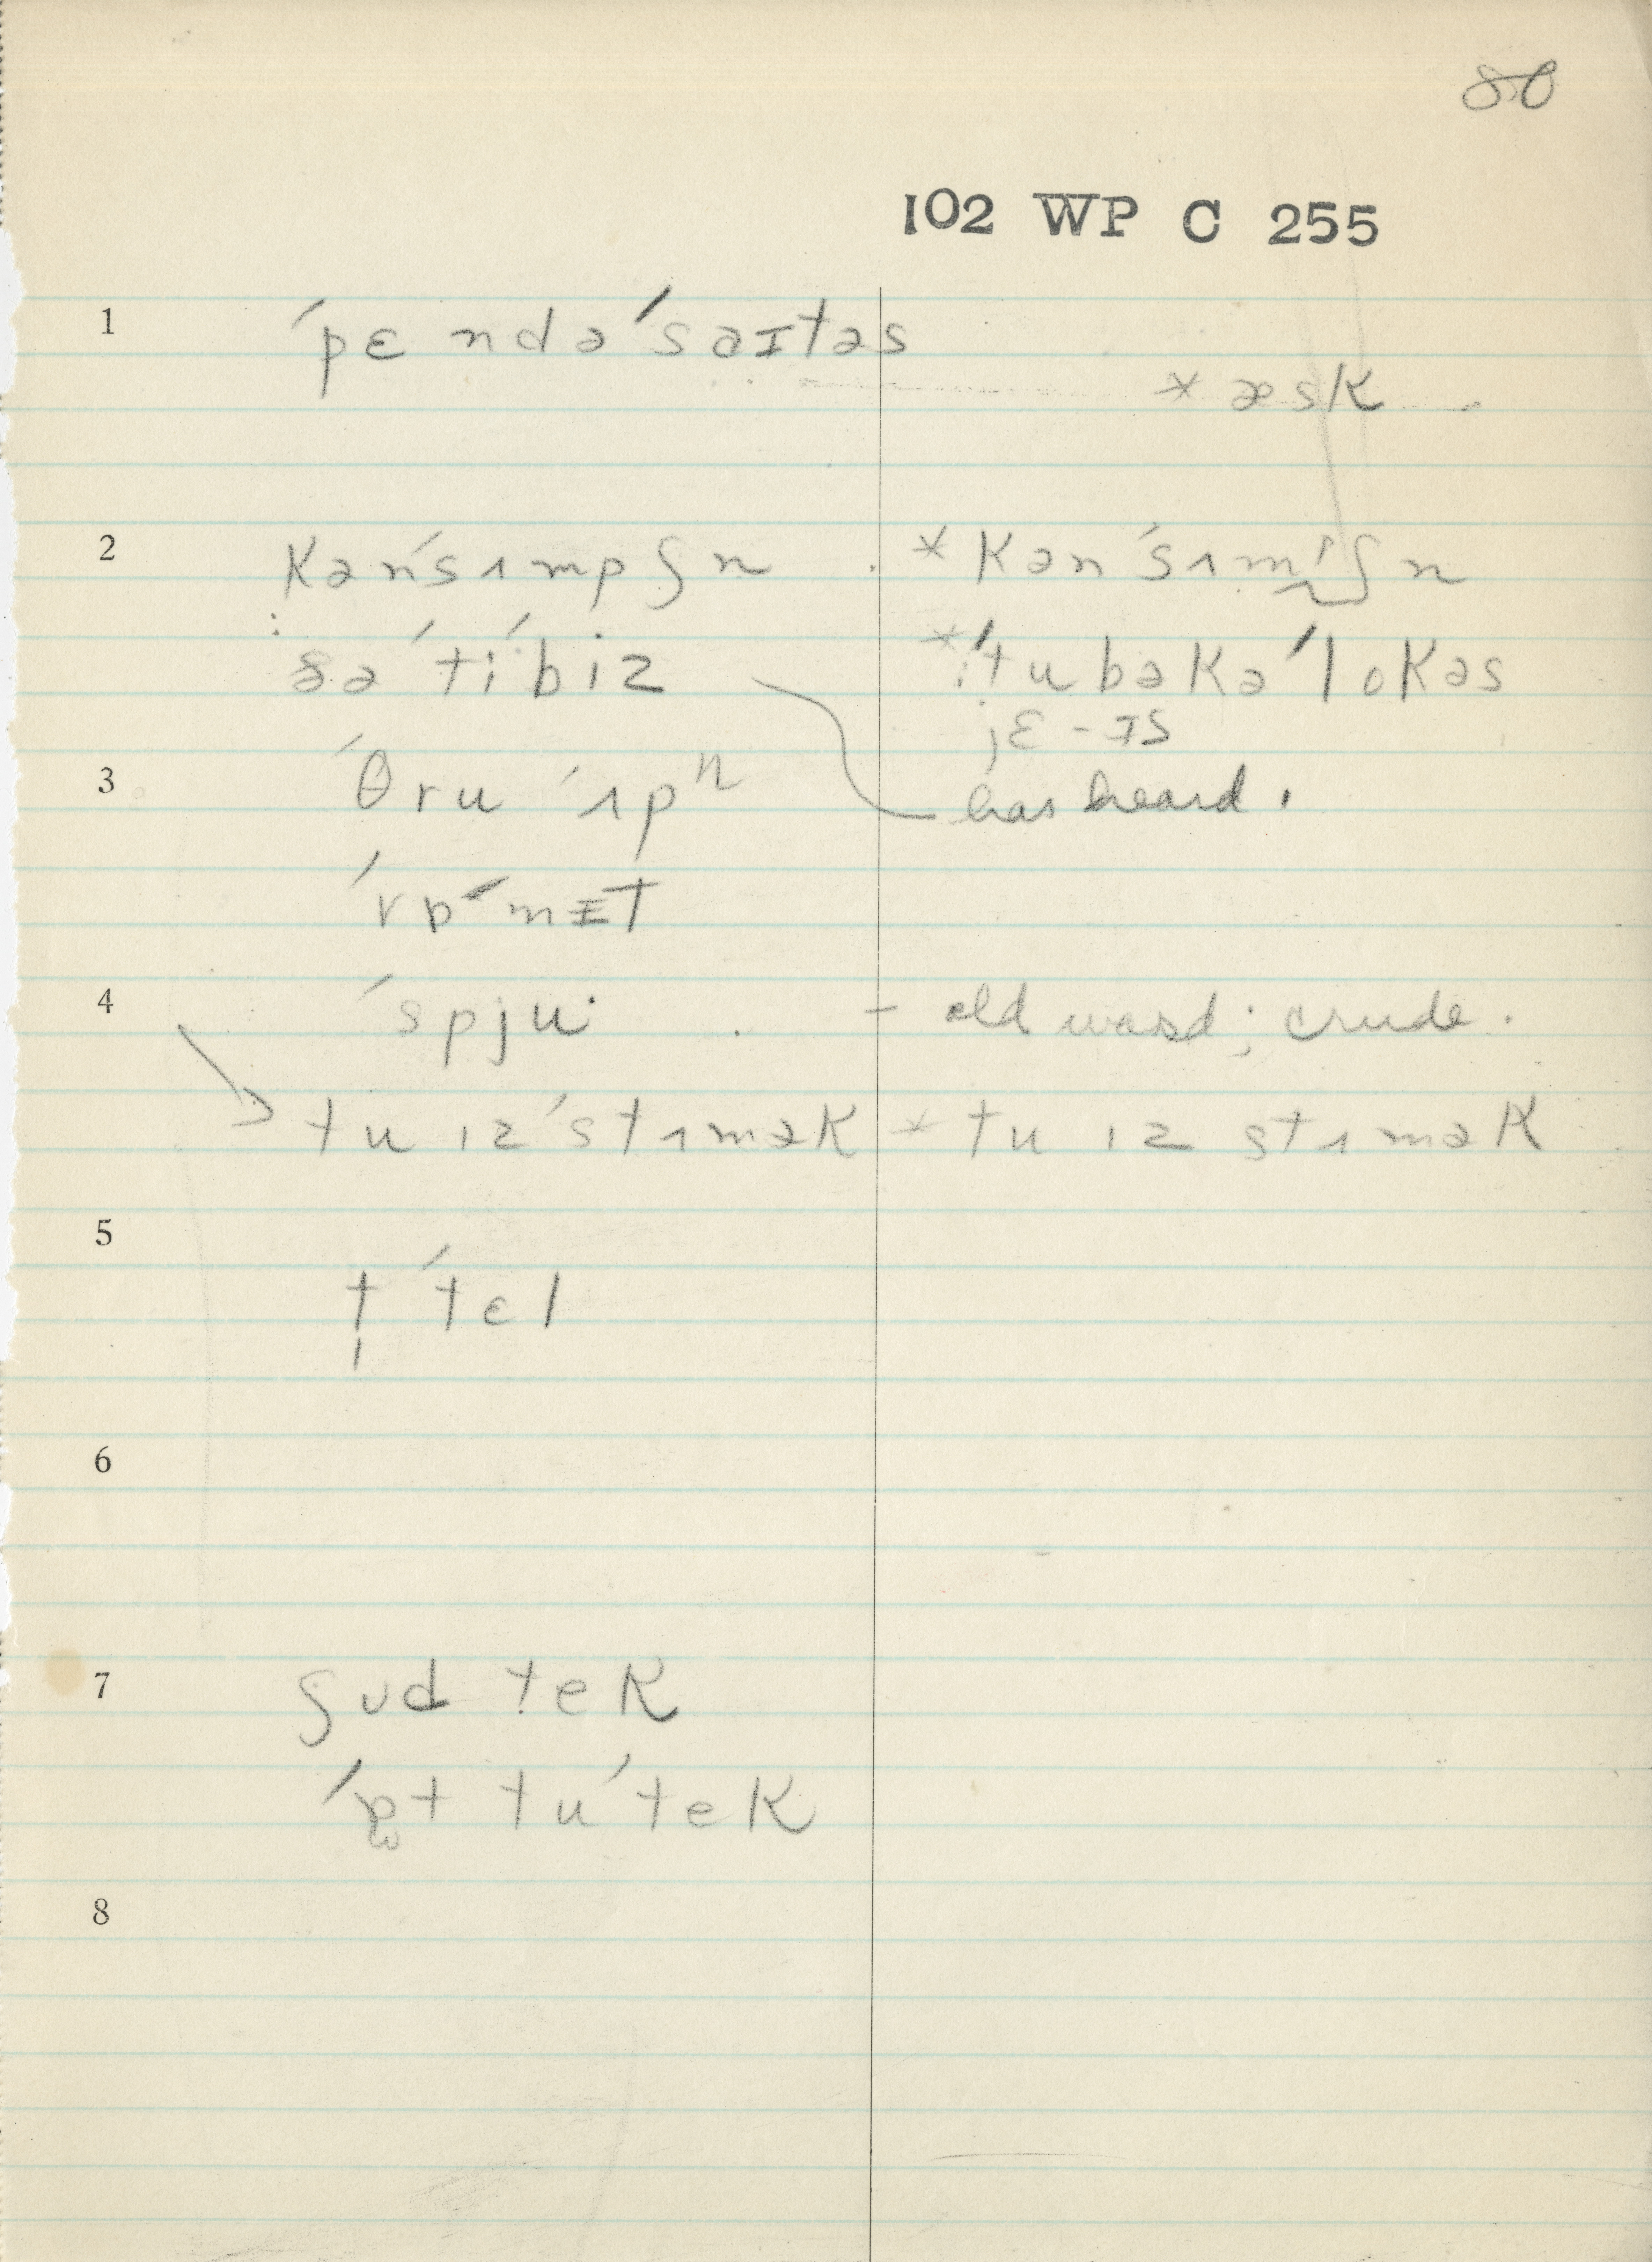 80
102 WP C 255
1 ˈpɛ ndəˈsaɪtəs
* æsk
2 kənˈsɪmpʃn * kənˈsɪmʃn
ðə ˈtiˈbiz * ˈtubəkəˈlokəs
; ɛ - ɪs
3 ˈθru ˈɪpⁿ has heard.
ˈvɒˈmɪt
4 ˈspju - old word; crude.
tu ɪz ˈstɪmək * tu ɪz stɪmək
5 t̩ ˈtɛl
6
7 ʃʊd tek
ˈɒt tuˈtek
8